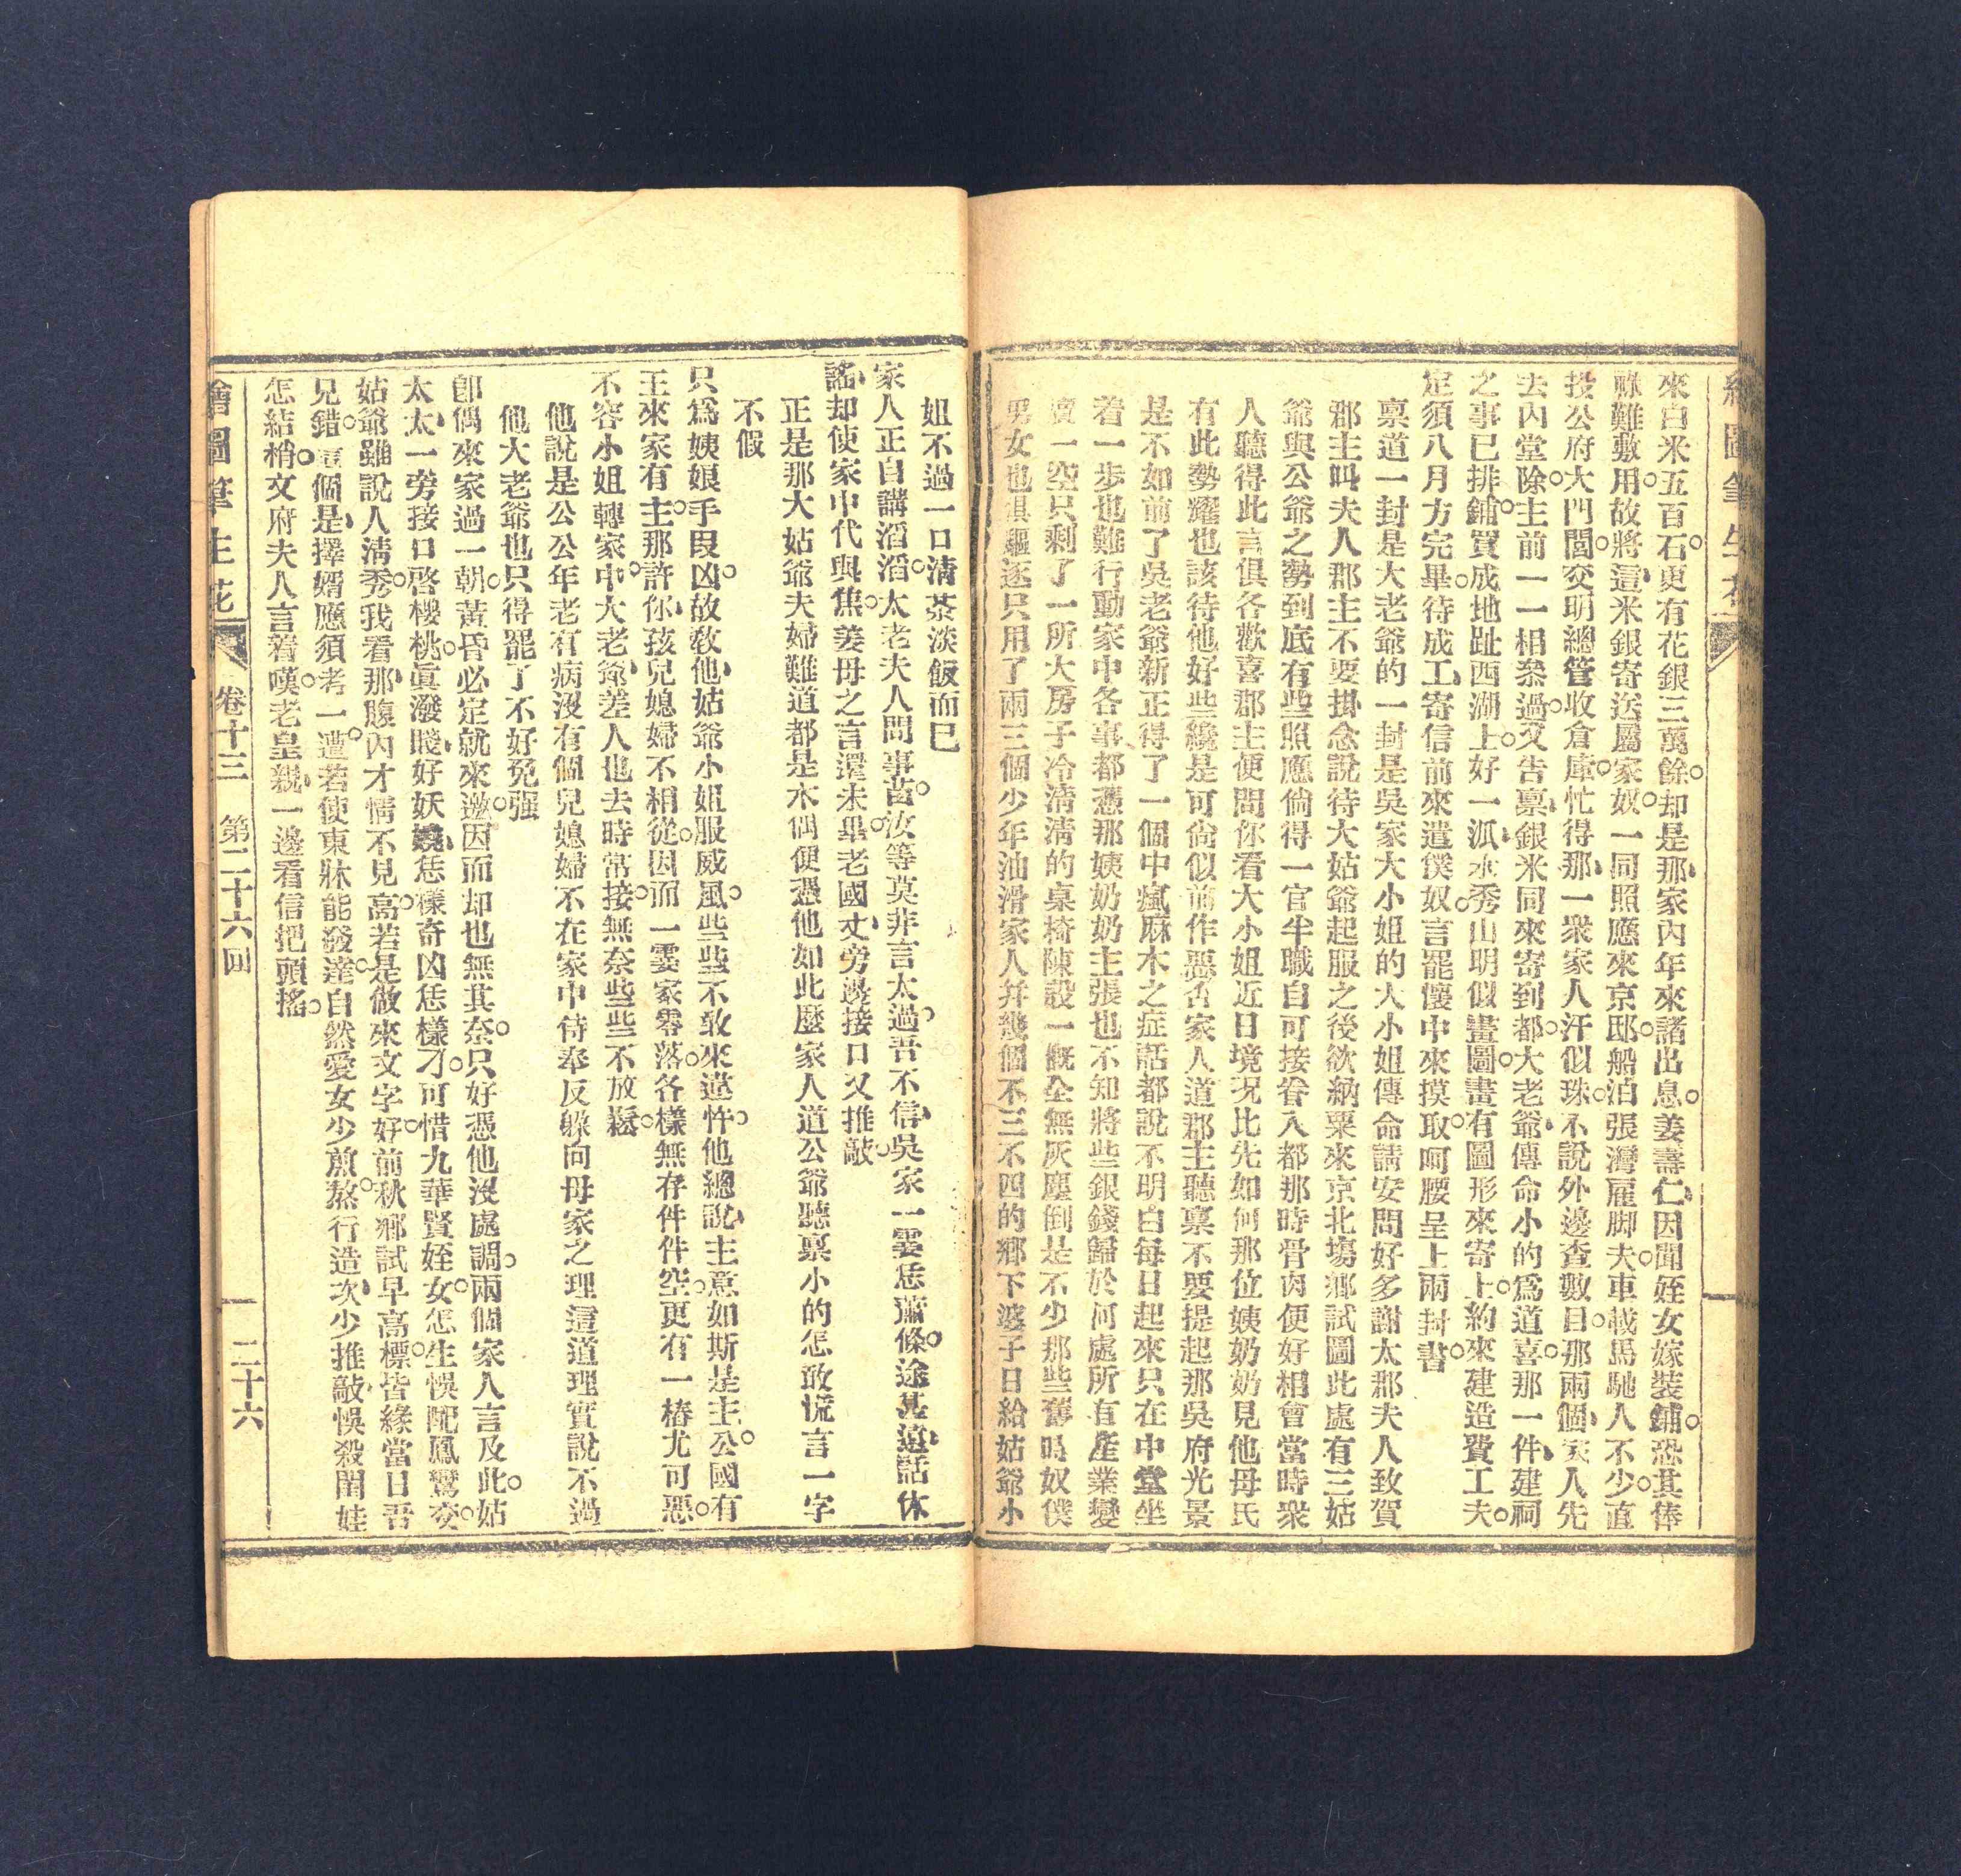 來白米五百石。更有花銀三萬餘。却是那家內年來諸出息。姜壽仁、因聞姪女嫁裝鋪。恐其俸
祿難敷用。故將這米銀寄送屬家奴。一同照應來京邸。船泊張灣雇脚夫。車載馬馳人不少。直
投公府大門閭。交明總管收倉庫。忙得那、一衆家人汗似珠。不說外邊查數目。那兩個、家人先
去內堂除。主前一一相叅過。又告禀、銀米同來寄到都。大老爺、傳命小的爲道喜。那一件、建祠
之事已排鋪。買成地趾西湖上。好一派、水秀山明似畫圖。畫有圖形來寄上。約來建造費工夫。
定須八月方完畢。待成工、寄信前來遣僕奴。言罷懷中來摸取。呵腰呈上兩封書。
禀道一封是大老爺的一封是吳家大小姐的大小姐傳命請安問好多謝太郡夫人致賀
郡主叫夫人郡主不要掛念說待大姑爺起服之後欲納粟來京北塲鄉試圖此處有三姑
爺與公爺之勢到底有些照應倘得一官半職自可接眷入都那時骨肉便好相會當時衆
人聽得此言俱各歡喜郡主便問你看大小姐近日境况比先如何那位姨奶奶見他母氏
有此勢耀也該待他好些纔是可尙似前作惡否家人道郡主聽禀不要提起那吳府光景
是不如前了吳老爺新正得了一個中瘋麻木之症話都說不明白每日起來只在中堂坐
着一步也難行動家中各事都憑那姨奶奶主張也不知將些銀錢歸於何處所有產業變
賣一空只剩了一所大房子冷清清的桌椅陳設一概全無灰塵倒是不少那些舊時奴僕
男女也俱驅逐只用了兩三個少年油滑家人幷幾個不三不四的鄉下婆子日給姑爺小
姐不過一口清茶淡飯而已
家人正自講滔滔。太老夫人問事苗。汝等莫非言太過。吾不信、吳家一霎恁蕭條。途甚遠、話休
謠、却使家中代與焦。姜母之言還未畢。老國丈、旁邊接口又推敲。
正是那大姑爺夫婦難道都是木偶便憑他如此麼家人道公爺聽禀小的怎敢慌言一字
不假
只爲姨娘手段凶。故敎他、姑爺小姐服威風。些些不敢來違忤。他總說、主意如斯是主公。國有
王來家有主。那許你、孩兒媳婦不相從。因而一霎家零落。各樣無存件件空。更有一樁尤可惡。
不容小姐轉家中。大老爺、差人也去時常接。無奈些些不放鬆。
他說是公公年老有病沒有個兒媳婦不在家中侍奉反躱向母家之理這道理實說不過
他大老爺也只得罷了不好免强
卽偶來家過一朝。黃昏必定就來邀。因而却也無其奈。只好憑他沒處調。兩個家人言及此。姑
太太、一旁接口啓櫻桃。眞潑賤、好妖嬈、恁樣奇凶恁樣刁。可惜九華賢姪女。怎生悞配鳳鸞交。
姑爺雖說人清秀。我看那、腹內才情不見高。若是做來文字好。前秋鄉試早高標。皆緣當日吾
兄錯。眞個是、擇婿應須考一遭。若使東牀能發達。自然愛女少煎熬。行造次、少推敲、悞殺閨娃
怎結梢。文府夫人言着嘆。老皇親、一邊看信把頭搖。
繪圖筆生花 卷十三 第二十六回 二十六